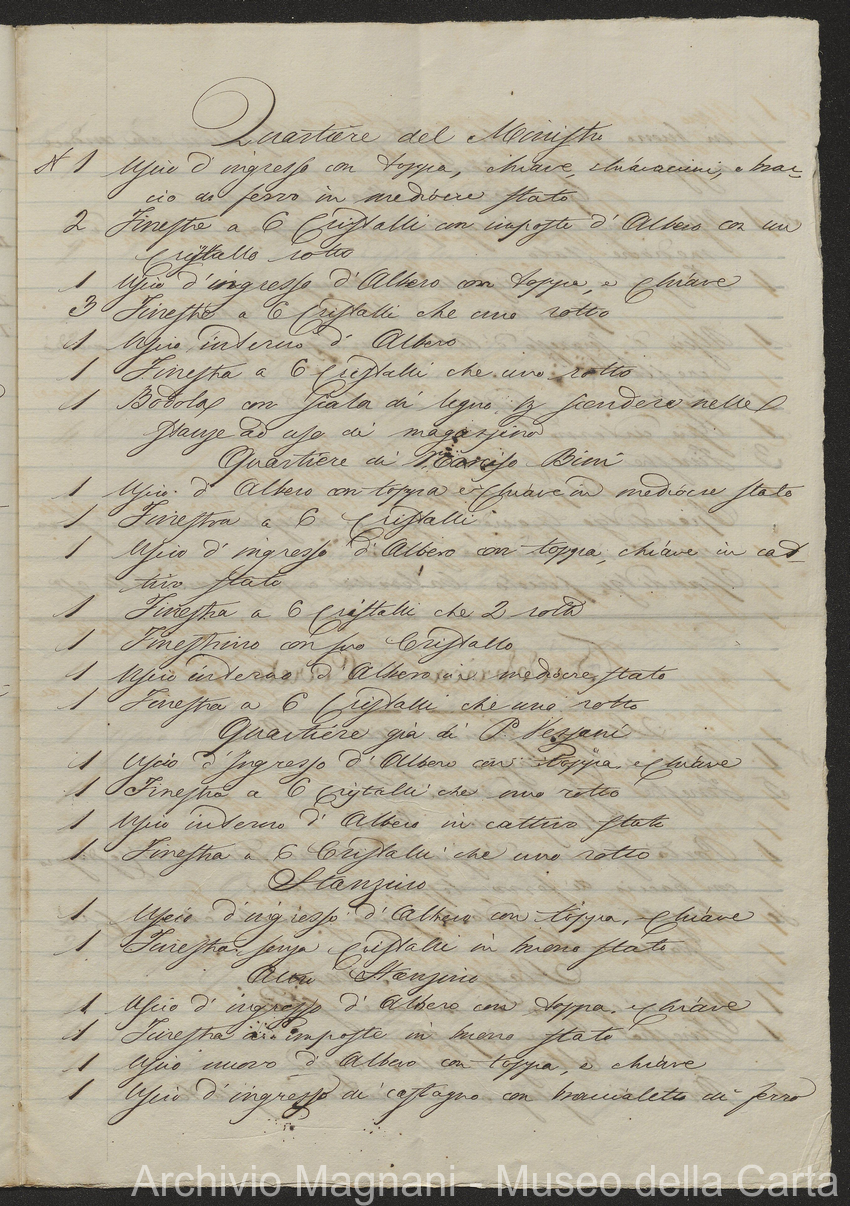 Quartiere del Ministro
N 1 Uscio d'ingresso con toppa, chiave, chiavaccini, e brac-
cio di ferro in mediocre stato
2 Finestre a 6 Cristalli con imposte d'Albero con un
Cristallo rotto
1 Uscio d'ingresso d'Albero con toppa, e Chiave
3 Finestre a 6 Cristalli che uno rotto
1 Uscio interno d'Albero
1 Finestra a 6 Cristalli che uno rotto
1 Bodola con Scala di legno p scendere nelle
stanze ad uso di magazzino
Quartiere di Narciso Bini
1 Uscio d'Albero con toppa e Chiave in mediocre stato
1 Finestra a 6 Cristalli
1 Uscio d'ingresso d'Albero con toppa, chiave in cat-
tivo stato
1 Finestra a 6 Cristalli che 2 rotti
1 Finestrino con suo Cristallo
1 Uscio interno d'Albero in mediocre stato
1 Finestra a 6 Cristalli che uno rotto
Quartiere già di P. Vezzani
1 Uscio d'Ingresso d'Albero con toppa e Chiave
1 Finestra a 6 Cristalli che uno rotto
1 Uscio interno d'Albero in cattivo stato
1 Finestra a 6 Cristalli che uno rotto
Stanzino
1 Uscio d'ingresso d'Albero con toppa, e Chiave
1 Finestra senza Cristalli in buono stato
Altro Stanzino
1 Uscio d'ingresso d'Albero con toppa, e Chiave
1 Finestra imposte in buono stato
1 Uscio nuovo d'Albero con toppa, e chiave
1 Uscio d'ingresso di castagno con braccialetto di ferro
Archivio Magnani - Museo della Carta